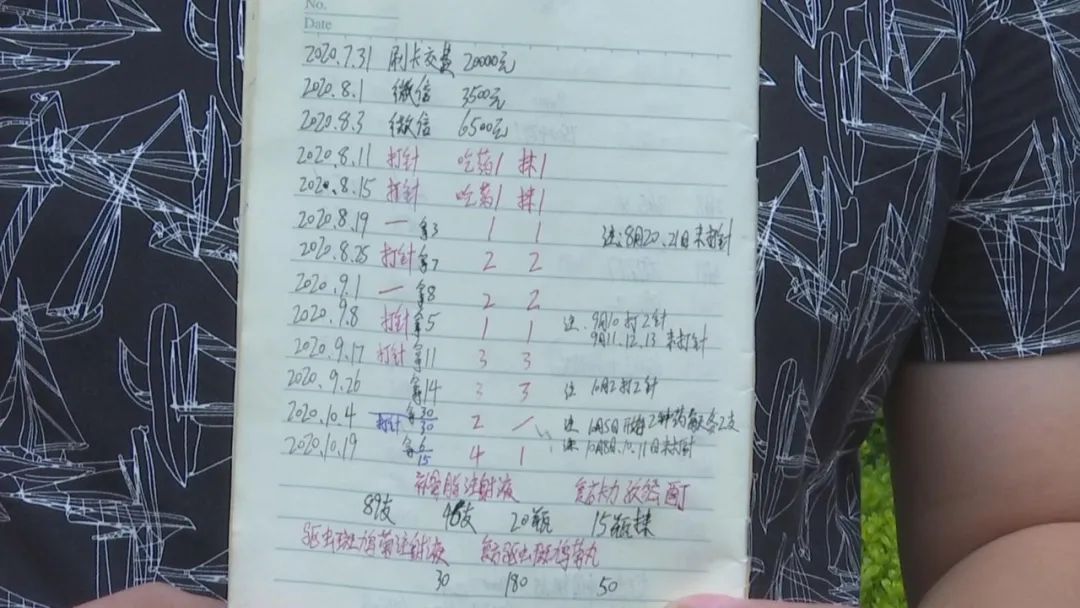 No.
Date
2020.7.31 刷卡交费 20000元
2020.8.1 微信 3500元
2020.8.3 微信 6500元
2020.8.11 打针 吃药1 抹1
2020.8.15 打针 吃药1 抹1
2020.8.19 一 拿3 1 1 注:8月20.21日未打针
2020.8.25 打针 拿7 2 2
2020.9.1 一 拿8 2 2
2020.9.8 打针 拿5 1 1 注:9月10打2针
9月11.12.13未打针
2020.9.17 打针 拿11 3 3
2020.9.26 拿14 3 3 注 10月2打2针
2020.10.4 打针 拿30/30 2 一 注 10月5日开始2种药每天各2支
2020.10.19 拿6/15 4 1 注 10月8日.10.11日未打针
补骨脂注射液 复方卡力孜然酊
89支 46支 20瓶 15瓶抹
驱虫斑鸠菊注射液 复方驱虫斑鸠菊丸
30 180 50